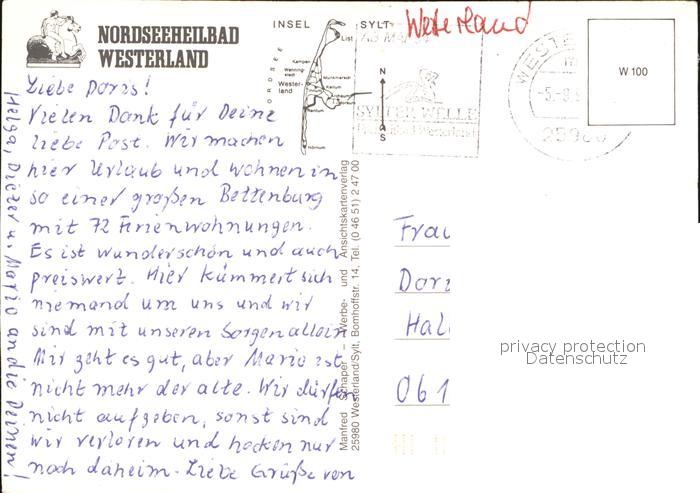 NORDSEEHEILBAD
WESTERLAND
INSEL SYLT
Westerland
NORDSEE
List
Kampen
Westerland
Munkmarsch
Keitum
Rantum
Hörnum
N
S
SYLTER WELLE
WESTE
-5.-9.
W 100
Liebe Doris!
Vielen Dank für Deine
liebe Post. Wir machen
hier Urlaub und wohnen in
so einer großen Bettenburg
mit 72 Ferienwohnungen.
Es ist wunderschön und auch
preiswert. Hier kümmert sich
niemand um uns und wir
sind mit unseren Sorgen allein.
Mir geht es gut, aber Mario ist
nicht mehr der alte. Wir dürfen
nicht aufgeben, sonst sind
wir verloren und hocken nur
noch daheim. Liebe Grüße von
Helga, Dieter u. Mario an die Deinen!
Manfred Schaper – Werbe- und Ansichtskartenverlag
25980 Westerland/Sylt, Bomhoffstr. 14, Tel. (0 46 51) 2 47 00
Frau
Dor
Hal
061
privacy protection
Datenschutz